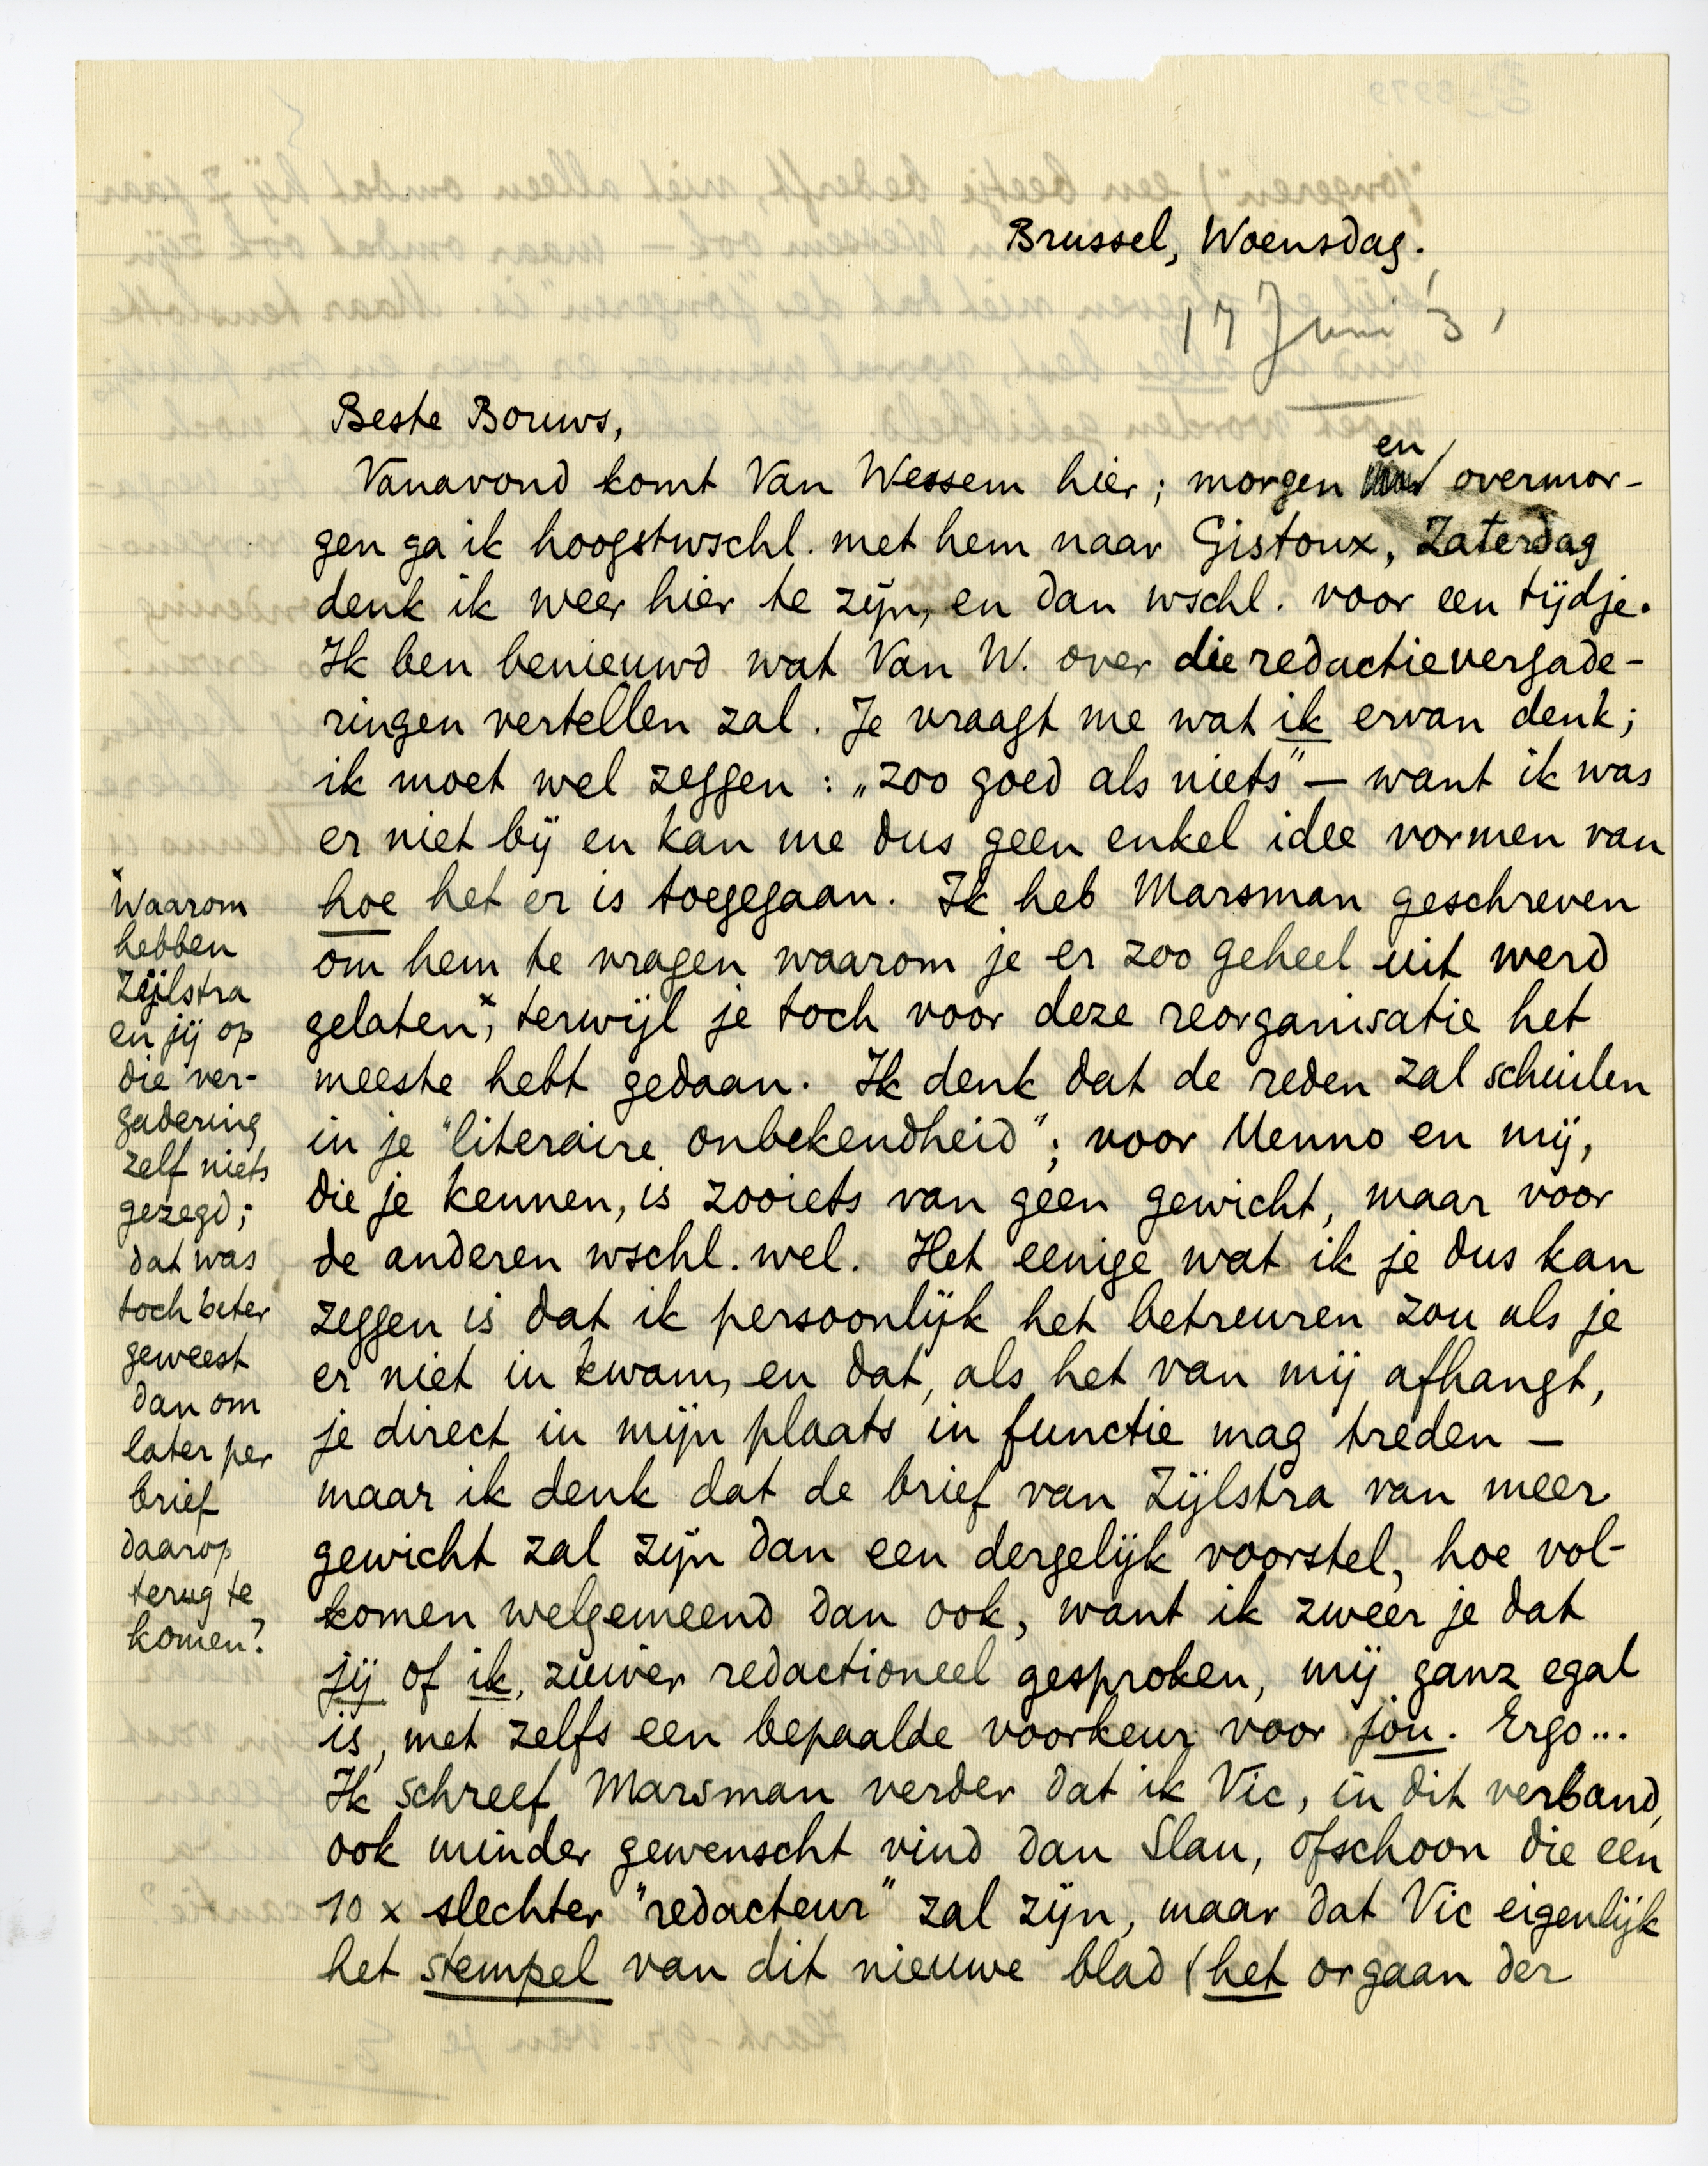 Brussel, Woensdag.
17 Juni '31
Beste Bouws,
Vanavond komt Van Wessem hier; morgen en overmor-
gen ga ik hoogstwschl. met hem naar Gistoux, Zaterdag
denk ik weer hier te zijn, en dan wschl. voor een tijdje.
Ik ben benieuwd wat Van W. over die redactievergade-
ringen vertellen zal. Je vraagt me wat ik ervan denk;
ik moet wel zeggen: „zoo goed als niets" — want ik was
er niet bij en kan me dus geen enkel idee vormen van
hoe het er is toegegaan. Ik heb Marsman geschreven
om hem te vragen waarom je er zoo geheel uit werd
gelaten,* terwijl je toch voor deze reorganisatie het
meeste hebt gedaan. Ik denk dat de reden zal schuilen
in je "literaire onbekendheid"; voor Menno en mij,
die je kennen, is zooiets van geen gewicht, maar voor
de anderen wschl. wel. Het eenige wat ik je dus kan
zeggen is dat ik persoonlijk het betreuren zou als je
er niet in kwam, en dat, als het van mij afhangt,
je direct in mijn plaats in functie mag treden —
maar ik denk dat de brief van Zijlstra van meer
gewicht zal zijn dan een dergelijk voorstel, hoe vol-
komen welgemeend dan ook, want ik zweer je dat
jij of ik, zuiver redactioneel gesproken, mij ganz egal
is, met zelfs een bepaalde voorkeur voor jou. Ergo...
Ik schreef Marsman verder dat ik Vic, in dit verband,
ook minder gewenscht vind dan Slau, ofschoon die een
10 x slechter "redacteur" zal zijn, maar dat Vic eigenlijk
het stempel van dit nieuwe blad (het orgaan der
*Waarom
hebben
Zijlstra
en jij op
die ver-
gadering
zelf niets
gezegd;
dat was
toch beter
geweest
dan om
later per
brief
daarop
terug te
komen?